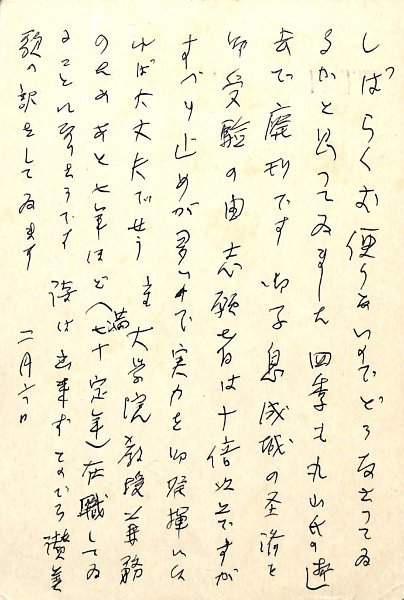 しばらくお便りないのでどうなつてゐ
るかと思つてゐました 四季も丸山氏の逝
去で廃刊です 御子息成城の圣済を
御受験の由 志願者は十倍以上ですが
すべり止めが多いので実力を御発揮にな
れば大丈夫でせう 大学院教授兼務
のためあと七年ほど(満七十定年)在職してゐ
ることになりさうです 詩は出来ず 讃美
歌の訳をしてゐます 二月六日